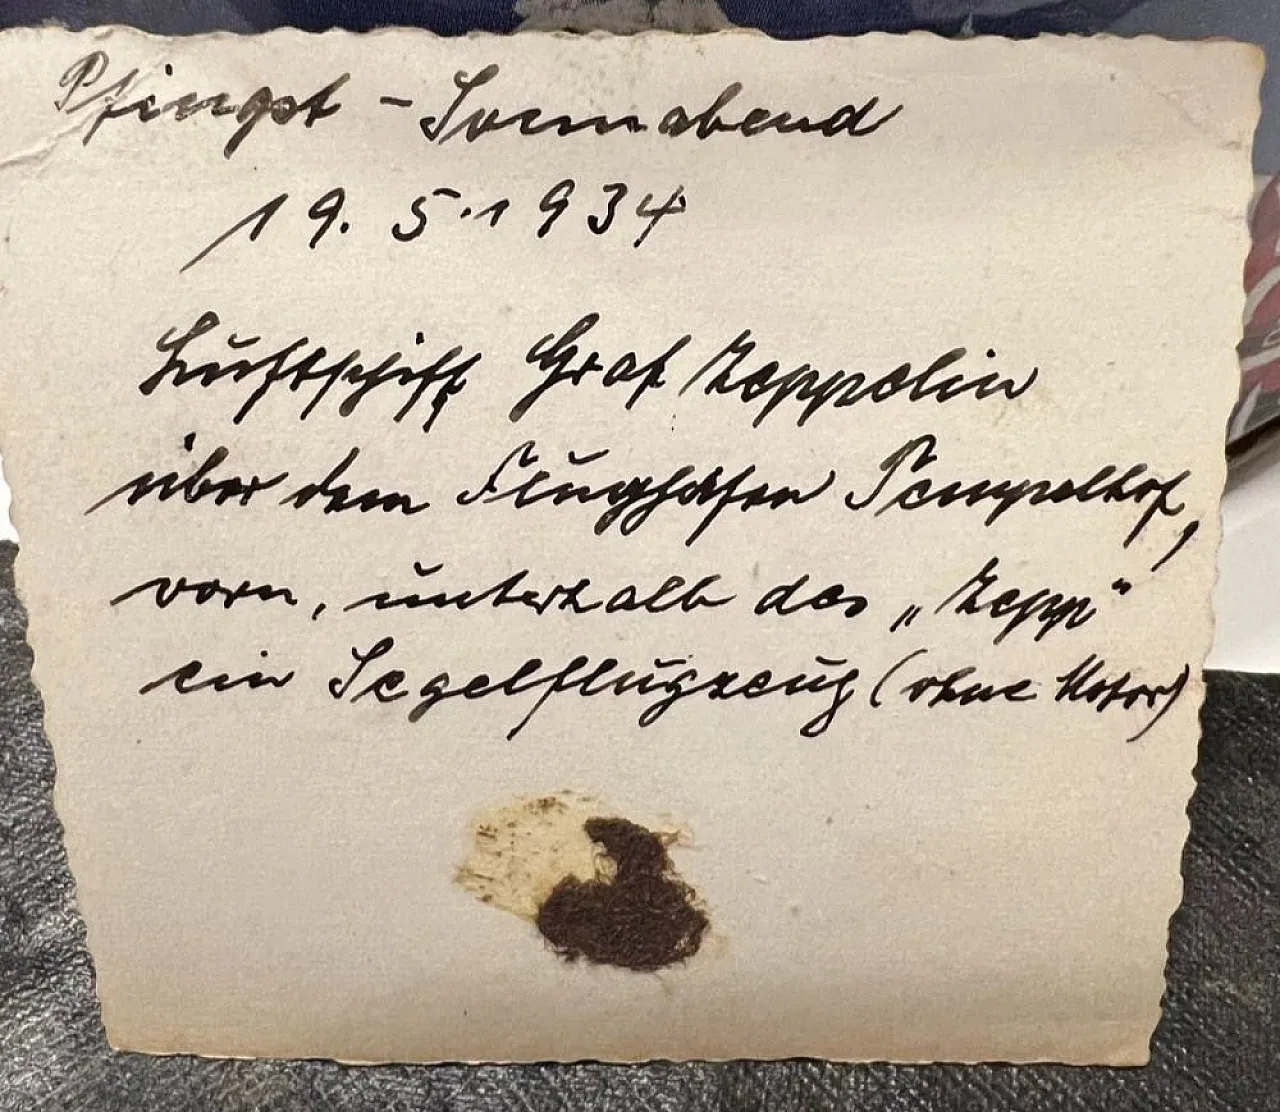 Pfingst - Sonnabend
19. 5. 1934
Luftschiff Graf Zeppelin
über dem Flughafen Tempelhof,
vorn, unterhalb des „Zepp“
ein Segelflugzeug (ohne Motor)